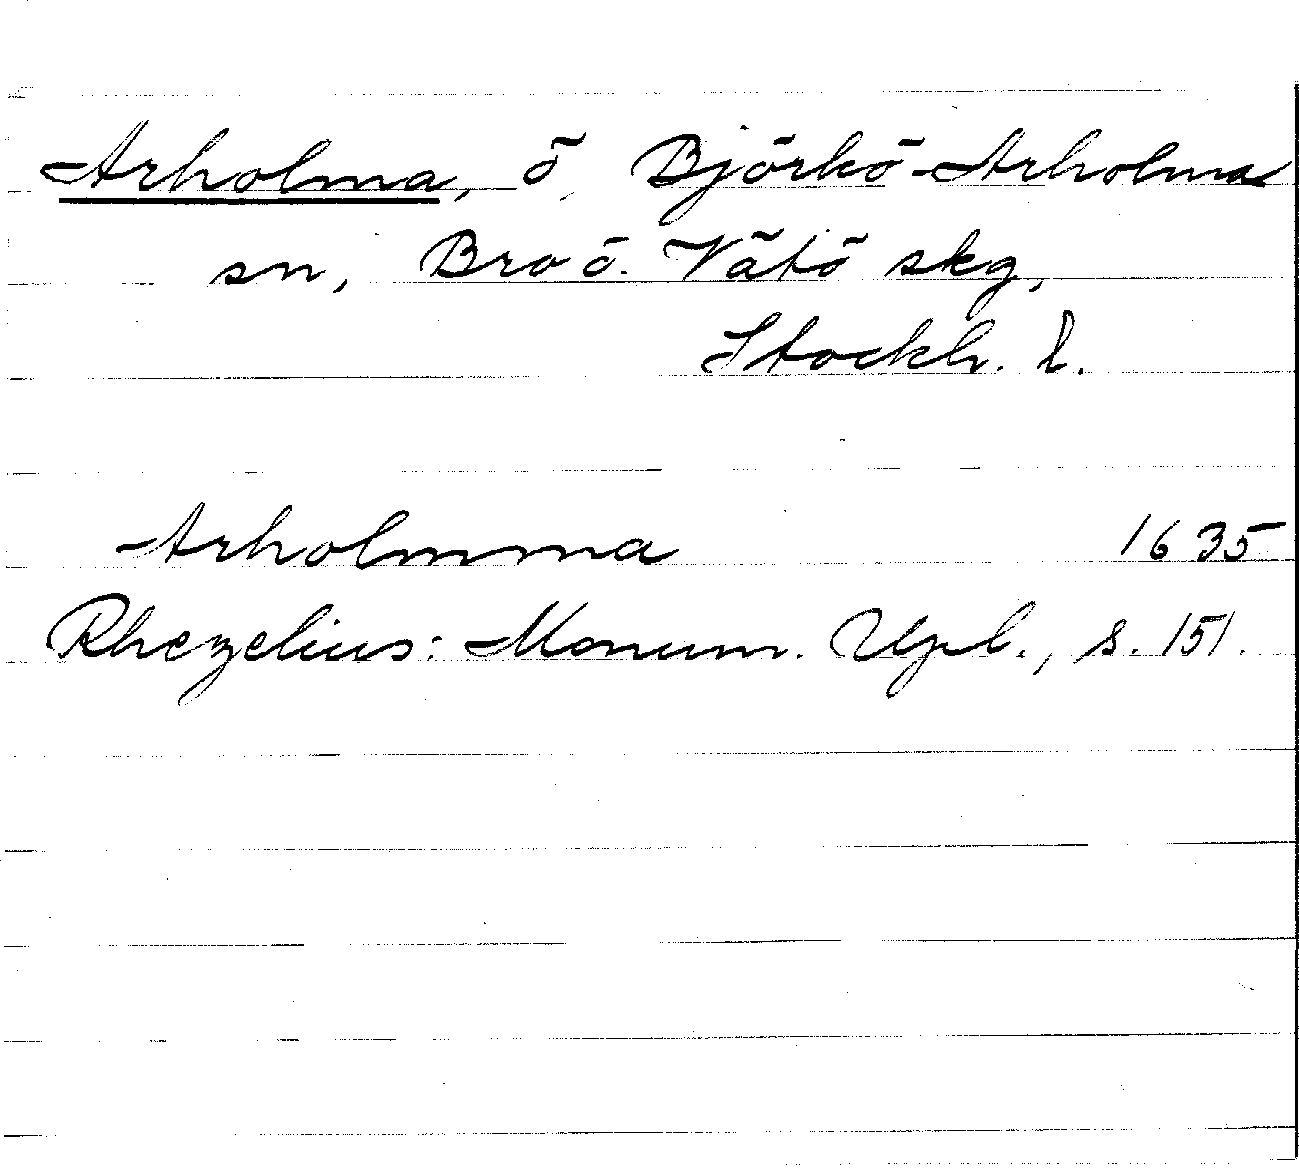 Arholma, ö, Björkö-Arholma
sn, Bro o. Vätö skg,
Stockh. l.
Arholmma 1635
Rhezelius: Monum. Upl., s. 151.